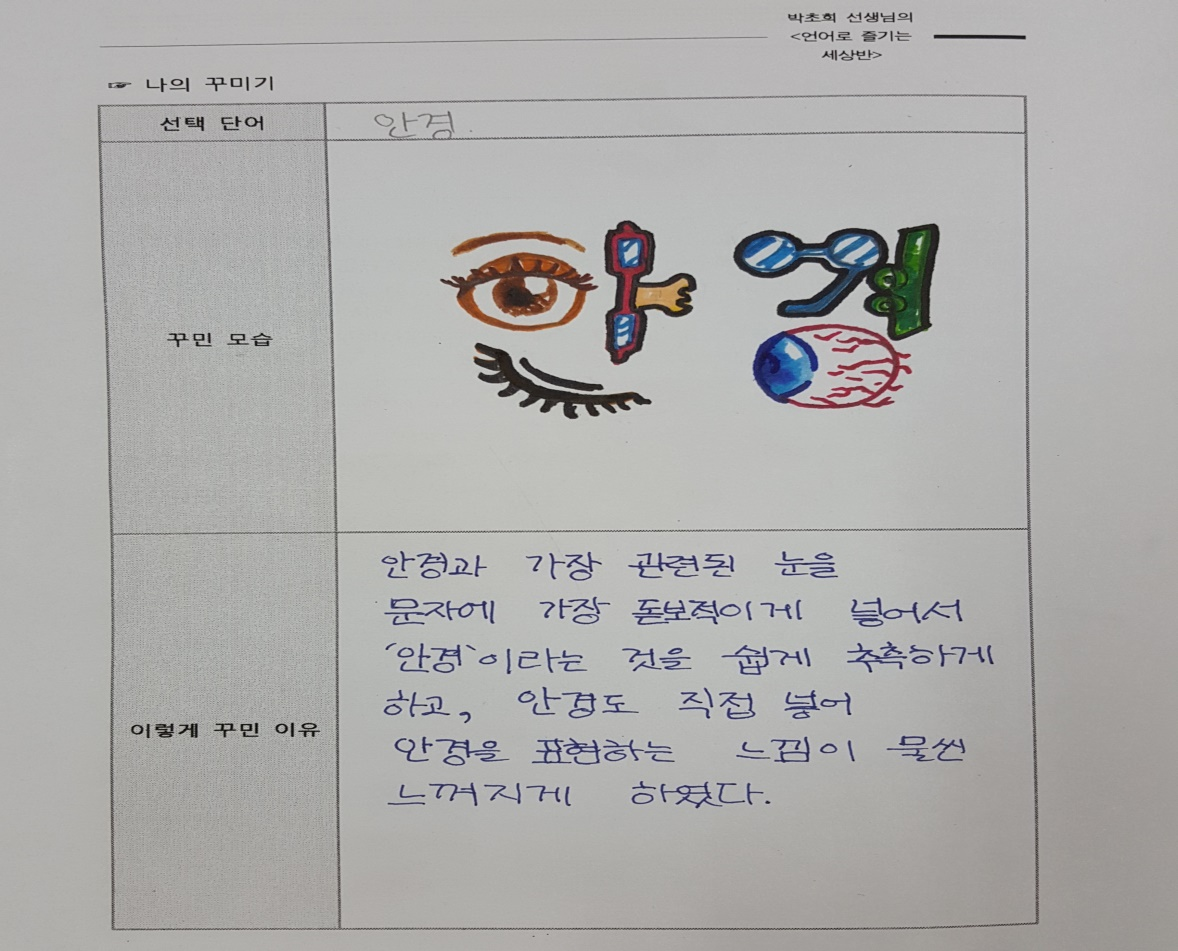 박초희 선생님의
<언어로 즐기는
세상반>
☞ 나의 꾸미기
선택 단어
안경.
꾸민 모습
안경
이렇게 꾸민 이유
안경과 가장 관련된 눈을
문자에 가장 돋보적이게 넣어서
'안경'이라는 것을 쉽게 추측하게
하고, 안경도 직접 넣어
안경을 표현하는 느낌이 물씬
느껴지게 하였다.